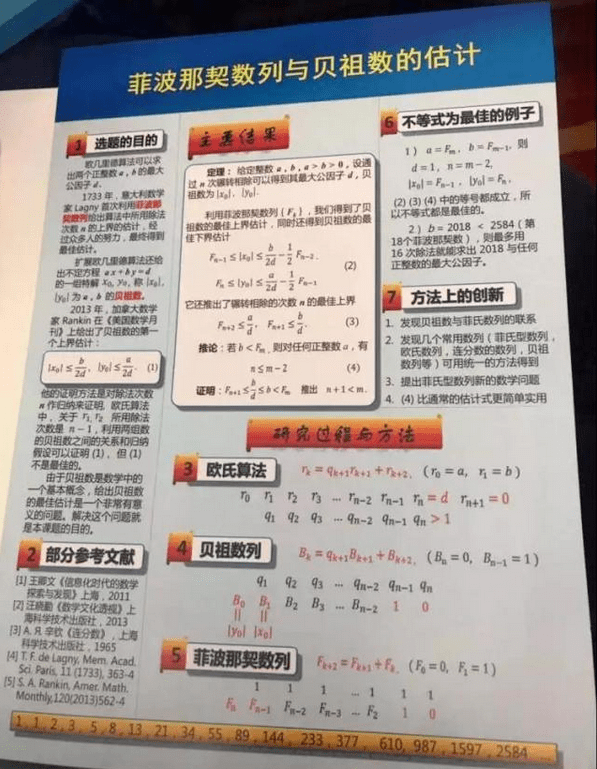 菲波那契数列与贝祖数的估计
1 选题的目的
欧几里德算法可以求
出两个正整数 a, b 的最大
公因子 d.
1733 年，意大利数学
家 Lagny 首次利用菲波那
契数列给出算法中所用除法
次数 n 的上界的估计，经
过众多人的努力，最终得到
最佳估计。
扩展欧几里德算法还给
出不定方程 ax+by=d
的一组特解 x₀, y₀, 称 |x₀|,
|y₀| 为 a, b 的贝祖数。
2013 年，加拿大数学
家 Rankin 在《美国数学月
刊》上给出了贝祖数的第一
个上界估计：
|x₀| ≤ b/2d, |y₀| ≤ a/2d. (1)
他的证明方法是对除法次数
n 作归纳来证明, 欧氏算法
中，关于 r₁, r₂ 所用除法
次数是 n−1，利用两组数
的贝祖数之间的关系和归纳
假设可以证明 (1)、但 (1)
不是最佳的。
由于贝祖数是数学中的
一个基本概念，给出贝祖数
的最佳估计是一个非常有意
义的问题。解决这个问题就
是本课题的目的。
2 部分参考文献
[1] 王卿文《信息化时代的数学
探索与发现》上海，2011
[2] 汪晓勤《数学文化透视》上
海科学技术出版社，2013
[3] А. Я. 辛钦《连分数》，上海
科学技术出版社，1965
[4] T. F. de Lagny, Mem. Acad.
Sci. Paris, 11 (1733), 363-4
[5] S. A. Rankin, Amer. Math.
Monthly,120(2013)562-4
主要结果
定理：给定整数 a, b, a > b > 0，设通
过 n 次辗转相除可以得到其最大公因子 d，贝
祖数为 |x₀|, |y₀|.
利用菲波那契数列 {Fₖ}，我们得到了贝
祖数的最佳上界估计，同时还得到贝祖数的最
佳下界估计
Fₙ₋₁ ≤ |x₀| ≤ b/2d − 1/2 Fₙ₋₂.
(2)
Fₙ ≤ |y₀| ≤ a/2d − 1/2 Fₙ₋₁
它还推出了辗转相除的次数 n 的最佳上界
Fₙ₊₂ ≤ a/d, Fₙ₊₁ ≤ b/d. (3)
推论：若 b < Fₘ, 则对任何正整数 a，有
n ≤ m − 2 (4)
证明：Fₙ₊₁ ≤ b/d ≤ b < Fₘ 推出 n + 1 < m.
6 不等式为最佳的例子
1） a = Fₘ, b = Fₘ₋₁, 则
d = 1, n = m − 2,
|x₀| = Fₙ₋₁, |y₀| = Fₙ,
(2) (3) (4) 中的等号都成立，所
以不等式都是最佳的。
2）b = 2018 < 2584（第
18个菲波那契数），则最多用
16 次除法就能求出 2018 与任何
正整数的最大公因子。
7 方法上的创新
1. 发现贝祖数与菲氏数列的联系
2. 发现几个常用数列（菲氏型数列，
欧氏数列，连分数的数列，贝祖
数列等）可用统一的方法得到
3. 提出菲氏型数列新的数学问题
4. (4) 比通常的估计式更简单实用
研究过程与方法
3 欧氏算法 rₖ = qₖ₊₁rₖ₊₁ + rₖ₊₂, (r₀ = a, r₁ = b)
r₀ r₁ r₂ r₃ … rₙ₋₂ rₙ₋₁ rₙ = d rₙ₊₁ = 0
q₁ q₂ q₃ … qₙ₋₂ qₙ₋₁ qₙ > 1
4 贝祖数列 Bₖ = qₖ₊₁Bₖ₊₁ + Bₖ₊₂, (Bₙ = 0, Bₙ₋₁ = 1)
q₁ q₂ q₃ … qₙ₋₂ qₙ₋₁ qₙ
B₀ B₁ B₂ B₃ … Bₙ₋₂ 1 0
|| ||
|y₀| |x₀|
5 菲波那契数列 Fₖ₊₂ = Fₖ₊₁ + Fₖ, (F₀ = 0, F₁ = 1)
1 1 1 … 1 1 1
Fₙ Fₙ₋₁ Fₙ₋₂ Fₙ₋₃ … F₂ 1 0
1, 1, 2, 3, 5, 8, 13, 21, 34, 55, 89, 144, 233, 377, 610, 987, 1597, 2584 ...